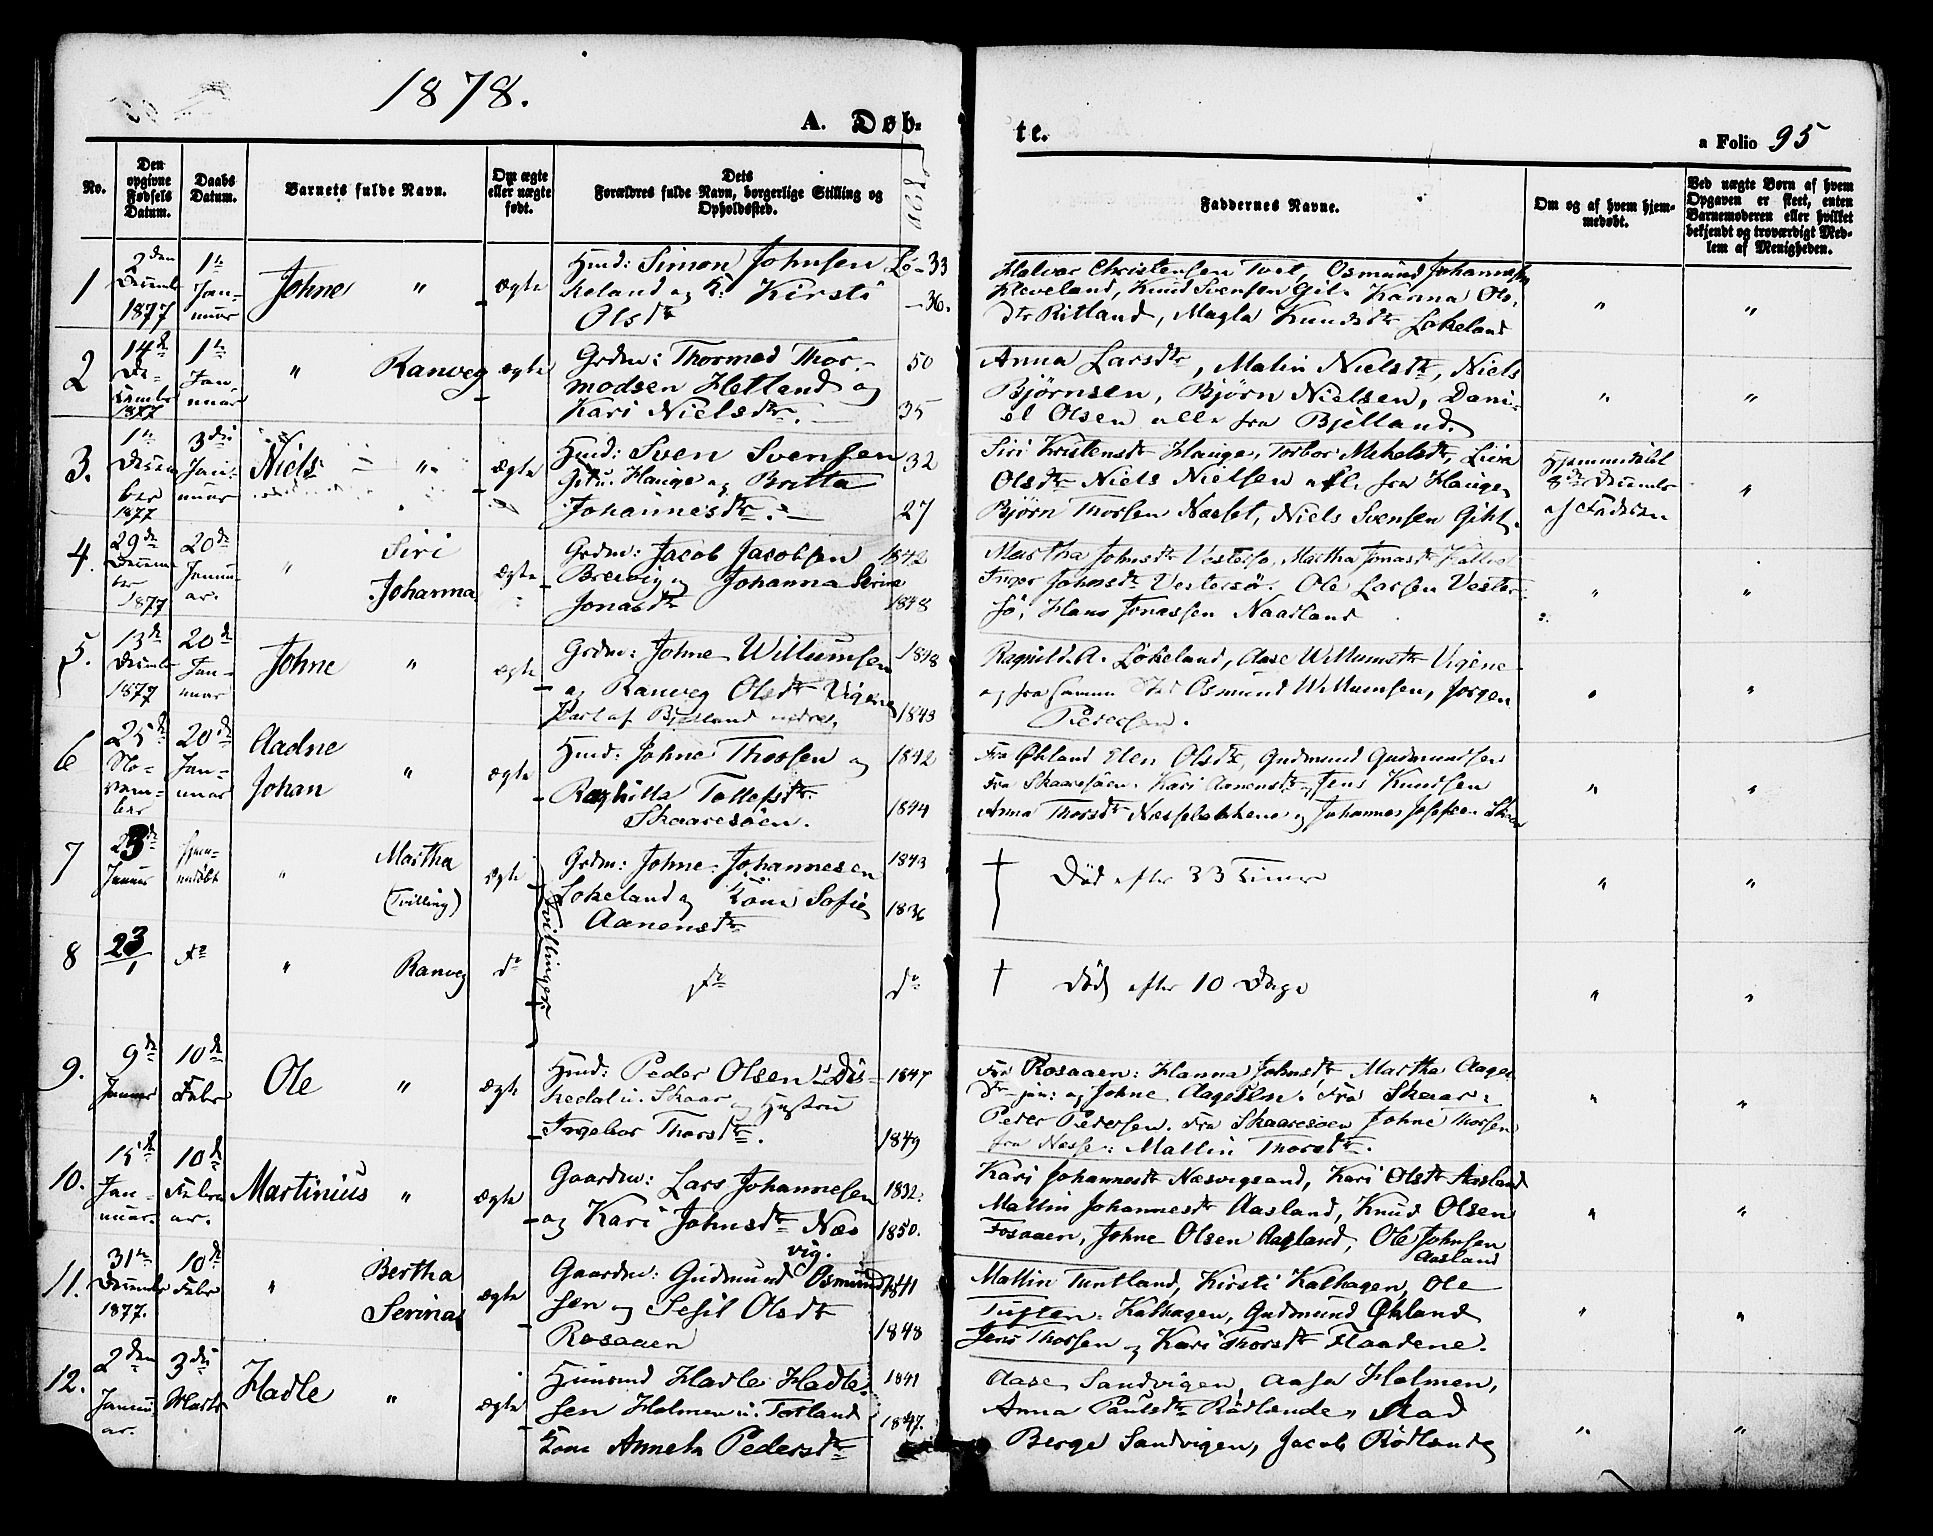 1878.
A. Døb-
te.
a Folio 95
No.
Den opgivne Fødsels Datum.
Daabs Datum.
Barnets fulde Navn.
Om ægte eller uægte født.
Dets Forældres fulde Navn, borgerlige Stilling og Opholdssted.
Faddernes Navne.
Om og af hvem hjemmedøbt.
Ved uægte Børn af hvem Opgaven er skeet, enten Barnemoderen eller hvilket bekjendt og troværdigt Medlem af Menigheden.
1
2den Decemb 1877
1ste Januar
Johne
"
ægte
Hmd: Simon Johnsen Lø-
keland og K: Kirsti
Olsdtr
33
36.
Halvar Christensen Tvet, Osmund Johannesen
Kleveland, Knud Svensen Gil. Kanna Ols-
dtr Ritland, Magla Knudsdtr Løkeland
"
"
2
14de December 1877
1ste Januar
"
Ranveg
ægte
Grdm: Thormod Thor-
modsen Hetland og
Kari Nielsdtr.
50
35
Anna Larsdtr, Malin Nielsdtr, Niels
Bjørnsen, Bjørn Nielsen, Dani-
el Olsen alle fra Bjelland.
"
"
3.
1ste December 1877
3die Januar
Niels
"
ægte
Hmd: Sven Svensen
Hauge og Britta
Johannesdtr.
32
27
Siri Kristensdt Hauge, Torbor Mekelsdt,
Olsdtr Niels Nielsen alle fra Hauge,
Bjørn Thorsen Nesset, Niels Svensen
Hjemmedøbt
8de Decemb
af Faderen
"
4.
29de December 1877
20de Januar.
"
Siri
Johanna
ægte
Grdm: Jacob Jacobsen
Brevig og Johanna Serine
Jonasdtr
1842
1848
Martha Johnsdtr Vestersø, Martha Jonasdt
Inger Johnsdtr Vestersø. Ole Larsen Vester-
sø, Hans Jonassen Naadland
"
"
5.
13de Decemb 1877
20de Januar
Johne
"
ægte
Grdm: Johne Willumsen
og Ranveg Olsdtr Vigene
Part af Bjelland nedre,
1848
1843
Ragnild. A. Løkeland, Aase Willumsdtr Vigene
og fra samme Sted Osmund Willumsen, Jørgen
Pedersen.
"
"
6
25de November
20de Januar
Aadne
Johan
"
ægte
Hmd: Johne Thorsen og
Tollefsdtr.
Skaaresøen.
1842
1844
Fra Økland Elen Olsdtr, Gudmund Gudmundsen
Fra Skaaresøen. Kari Aanensdtr, Jens Knudsen
Anna Thorsdt Næssebakkene og Johannes Josefsen
"
"
7
23de Januar
Hjemmedøbt
"
Martha
(Tvilling)
ægte
Grdm: Johne Johannesen
Løkeland og Kone Sofie
Aanensdtr
1843
1836
† Død efter 33 Timer
"
"
Tvillinger.
8
23/1
do
"
Ranveg
do
do
do
† Død efter 10 Dage
"
"
9.
9de Januar
10de Febr
Ole
"
ægte
Hmd: Peder Olsen Dis-
kedal u. Skaar og Hustru
Ingebor Thorsdtr.
1847
1849
Fra Rosaaen: Hanna Johnsdt, Martha Aages
Dtr jun: og Johne Aagesen. Fra Skaar:
Peder Pedersen. Fra Skaaresøen Johne Thorsen
fra Nesse: Mallin Thorsdtr.
"
"
10.
15de Januar.
10de Februar.
Martinius
"
ægte
Gaardm: Lars Johannesen
og Kari Johnsdtr Næs
vig.
1832.
1850.
Kari Johannesdtr Næsvigsand, Kari Olsdt Aasland
Mallin Johannesdtr Aasland, Knud Olsen
Fosaaen, Johne Olsen Aasland, Ole Johnsen
Aasland
"
"
11.
31te December 1877.
10de Febr
"
Bertha
Serina
ægte
Gaardm: Gudmund Osmund-
sen og Sesil Olsdtr
Rosaaen
1841
1848
Mallin Tuntland, Kirsti Kalhagen, Ole
Tuften: Kalhagen, Gudmund Økland
Jens Thorsen og Kari Thorsdtr Flaadene.
"
"
12.
2den Januar.
3die Marts
Hadle
"
ægte
Huusmd Hadle Hadle-
sen Holmen u. Totland
Kone Anneta Pedersdtr
1841
1847.
Aase Sandvigen, Aasa Holmen,
Anna Paulsdtr Rødlande,
Berge Sandvigen, Jacob Rødland
"
"